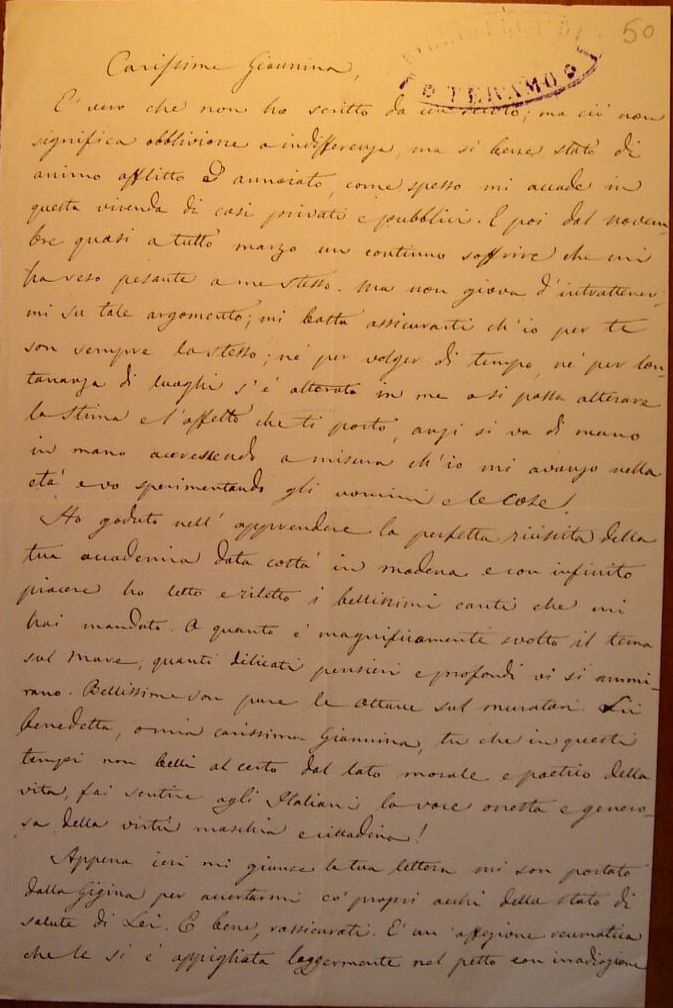 50
TERAMO
Carissima Giannina,
E' vero che non ho scritto da un secolo; ma ciò non
significa obblivione o indifferenza, ma si bene stato di
animo afflitto ed annoiato, come spesso mi accade in
questa vicenda di casi privati e pubblici. E poi dal novem-
bre quasi a tutto marzo un continuo soffrire che mi
ha reso pesante a me stesso. Ma non giova d'intrattener-
mi su tale argomento; mi basta assicurarti ch'io per te
son sempre lo stesso; nè per volger di tempo, nè per lon-
tananza di luoghi s'è alterata in me o si possa alterare
la stima e l'affetto che ti porto, anzi si va di mano
in mano accrescendo a misura ch'io mi avanzo nella
età e vo sperimentando gli uomini e le cose.
Ho goduto nell'apprendere la perfetta riuscita della
tua accademia data costà in modena e con infinito
piacere ho letto e riletto i bellissimi canti che mi
hai mandato. O quanto è magnificamente svolto il tema
sul mare; quanti delicati pensieri e profondi vi si ammi-
rano. Bellissime son pure le ottave sul muratori. Sii
benedetta, o mia carissima Giannina, tu che in questi
tempi non belli al certo dal lato morale e poetico della
vita, fai sentire agli Italiani la voce onesta e genero-
sa della virtù maschia e cittadina!
Appena ieri mi giunse la tua lettera mi son portato
dalla Gigina per accertarmi co' propri occhi dello stato di
salute di Lei. E bene, rassicurati. E' un'affezione reumatica
che le si è appigliata leggermente nel petto con irradiazione